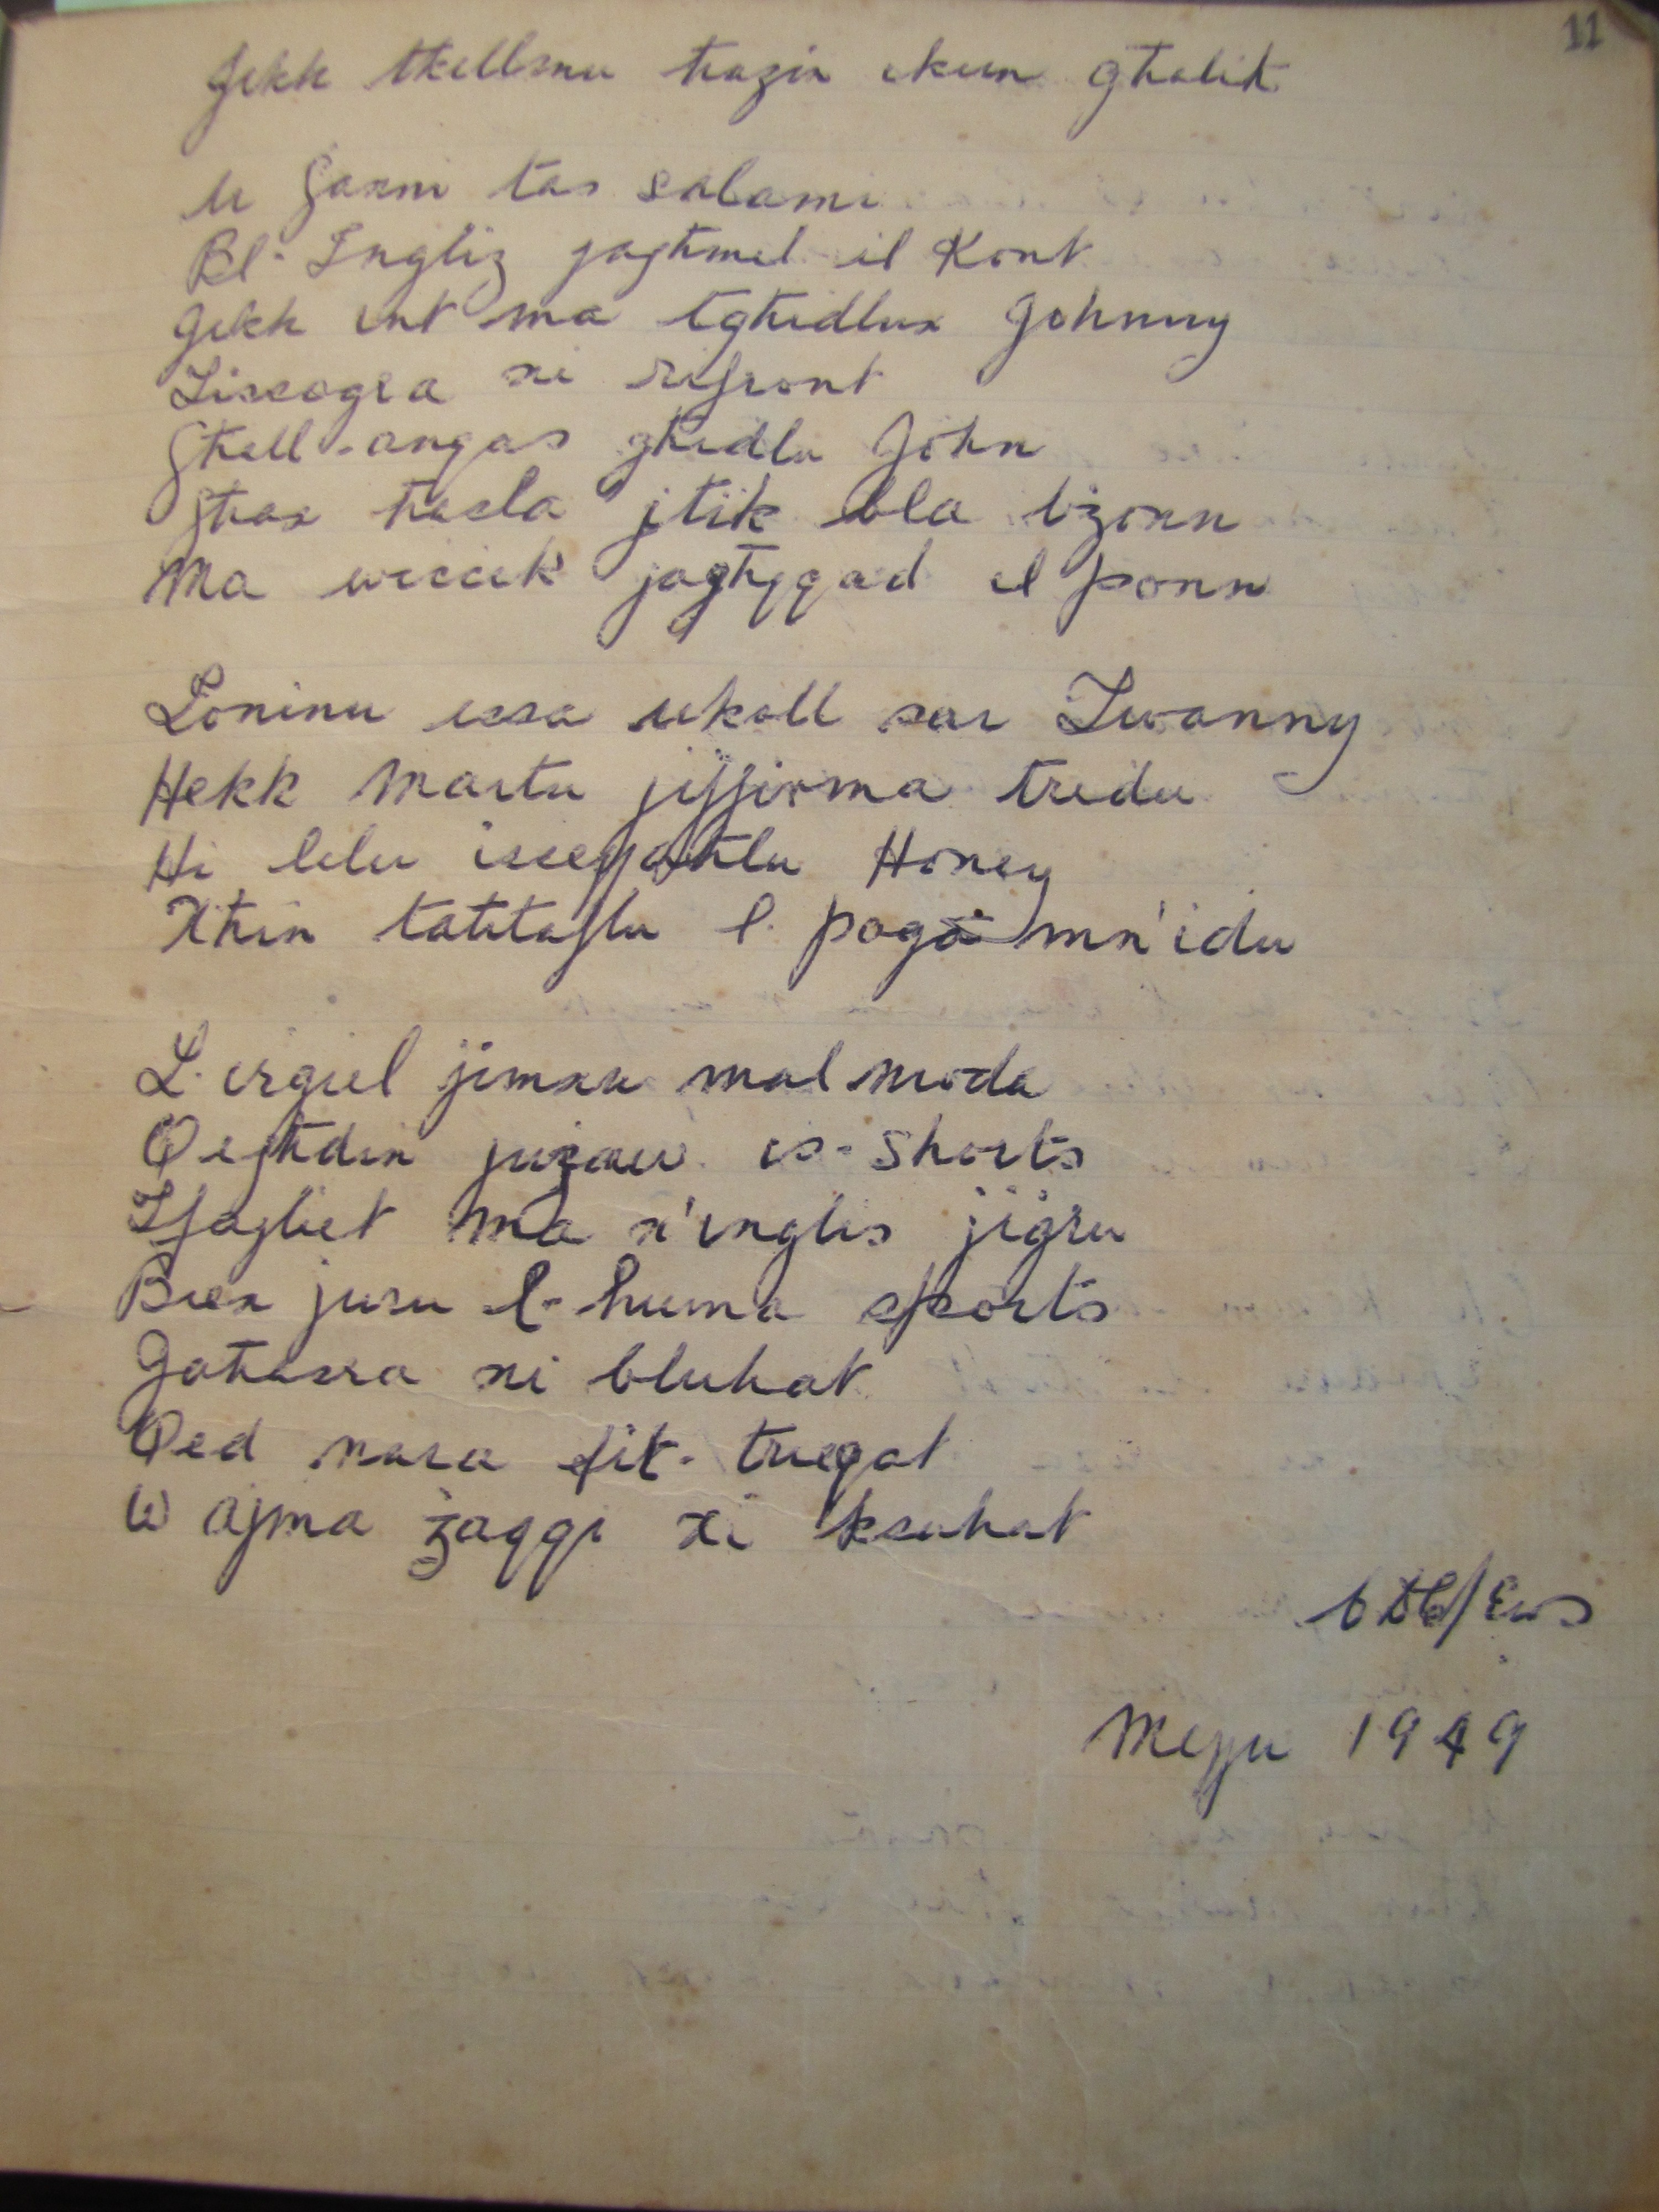 11
Jekk tkellmu hazin ikun ghalik
U Ganni tas salami
Bl-Ingliz jaghmel il Kont
Jekk int ma tghidlux Johnny
Tissogra xi rifront
Ghall-anqas ghidlu John
Ghax hasla jtik bla bżonn
Ma wiccek jaghqqad il ponn
Loninu issa ukoll sar Iwanny
Hekk Martu jiffirma tridu
Hi lilu issejjahlu Honey
Xhin tahtaflu l-paga mn'idu
L-irgiel jimxu mal moda
Qeghdin jużaw is-Shorts
Ifagliet ma x'inglis jiġru
Biex juru l-huma sports
Jahasra xi bluhat
Qed nara fit-triqat
W ajma żaqqi xi ksuhat
Mejju 1949